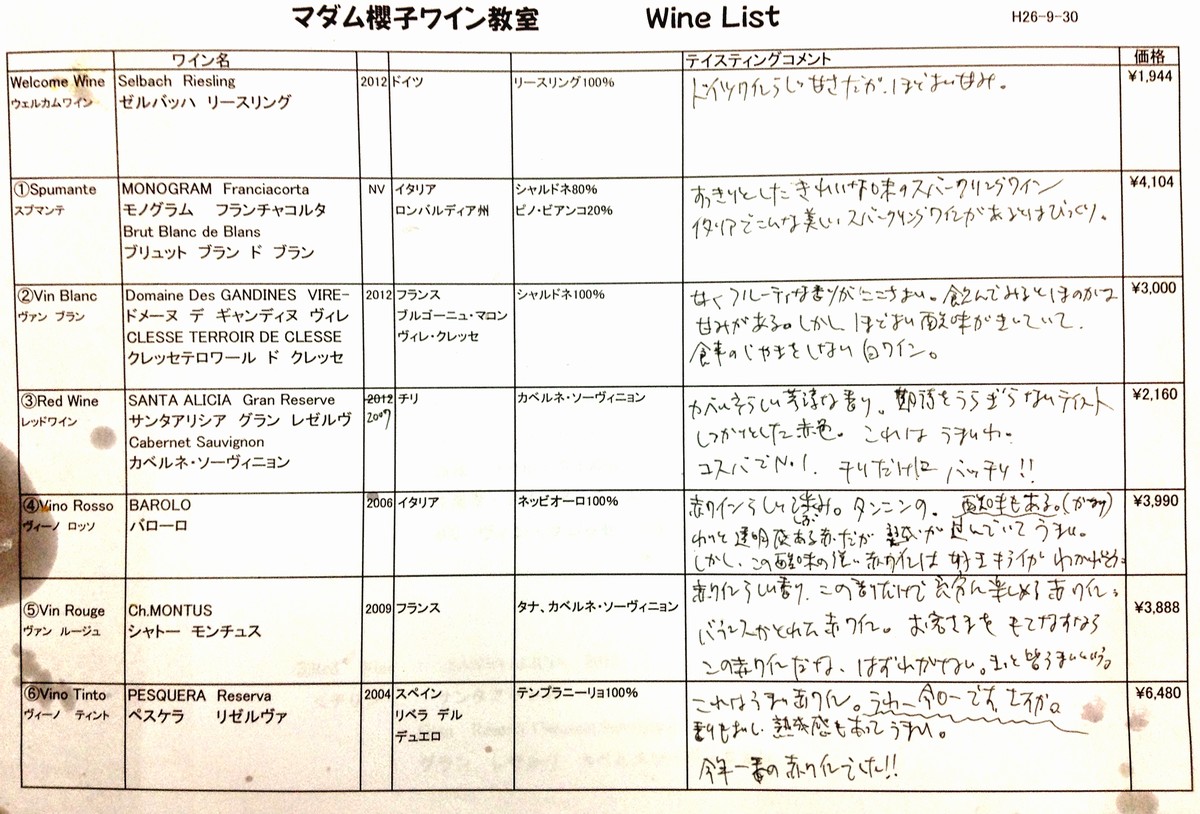 マダム櫻子ワイン教室 Wine List H26-9-30
ワイン名 テイスティングコメント 価格
Welcome Wine Selbach Riesling 2012 ドイツ リースリング100% ¥1,944
ウェルカムワイン ゼルバッハ リースリング
ドイツワインらしい甘さだが、ほどよい甘み。
①Spumante MONOGRAM Franciacorta NV イタリア シャルドネ80% ¥4,104
スプマンテ モノグラム フランチャコルタ ロンバルディア州 ピノ・ビアンコ20%
Brut Blanc de Blans
ブリュット ブラン ド ブラン
すっきりとしたきれいな味のスパークリングワイン
イタリアでこんな美しいスパークリングワインがあるとはびっくり。
②Vin Blanc Domaine Des GANDINES VIRE- 2012 フランス シャルドネ100% ¥3,000
ヴァン ブラン ドメーヌ デ ギャンディヌ ヴィレ ブルゴーニュ・マロン
CLESSE TERROIR DE CLESSE ヴィレ・クレッセ
クレッセテロワール ド クレッセ
甘くフルーティな香りがここちよい。飲んでみるとほのかな
甘みがある。しかしほどよい酸味がきいていて、
食事のじゃまをしない白ワイン。
③Red Wine SANTA ALICIA Gran Reserve 2012 チリ カベルネ・ソーヴィニョン ¥2,160
レッドワイン サンタアリシア グラン レゼルヴ 2007
Cabernet Sauvignon
カベルネ・ソーヴィニョン
カベルネらしい芳淳な香り。期待をうらぎらないテイスト
しっかりとした赤色。これはうまいわ。
コスパでNo.1. チリだけに バッチリ!!
④Vino Rosso BAROLO 2006 イタリア ネッビオーロ100% ¥3,990
ヴィーノ ロッソ バローロ
赤ワインらしい渋み。タンニンの。酸味もある。(かなり)
わりと透明度ある赤だが 熟成が進んでいてうまい。
しかし、この酸味の強い赤ワインは 好きキライが わかれそう
⑤Vin Rouge Ch.MONTUS 2009 フランス タナ、カベルネ・ソーヴィニョン ¥3,888
ヴァン ルージュ シャトー モンチュス
赤ワインらしい香り、この香りだけで充分に楽しめる赤ワイン。
バランスがとれた赤ワイン。お客さまをもてなすなら
この赤ワインだな、はずれがない。きっと皆うまいという。
⑥Vino Tinto PESQUERA Reserva 2004 スペイン テンプラニーリョ100% ¥6,480
ヴィーノ ティント ペスケラ リゼルヴァ リベラ デル
デュエロ
これはうまい赤ワイン。うわー今日一です。さすが。
香りもよい、熟成感もあってうまい。
今年一番の赤ワインでした!!